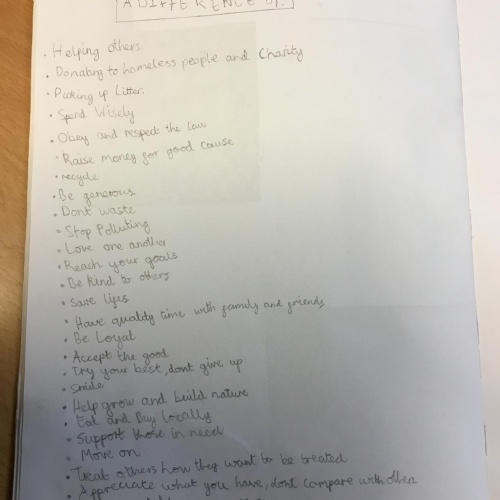 A DIFFERENCE BY:
• Helping others
• Donating to homeless people and Charity
• Picking up Litter.
• Spend Wisely
• Obey and respect the law
• Raise money for good cause
• recycle
• Be generous
• Dont waste
• Stop Polluting
• Love one another
• Reach your goals
• Be kind to others
• Save lifes
• Have quality time with family and friends
• Be Loyal
• Accept the good
• Try your best, dont give up
• Smile
• Help grow and build nature
• Eat and Buy locally
• Support those in need
• Move on
• Treat others how they want to be treated
• Appreciate what you have, dont compare with other